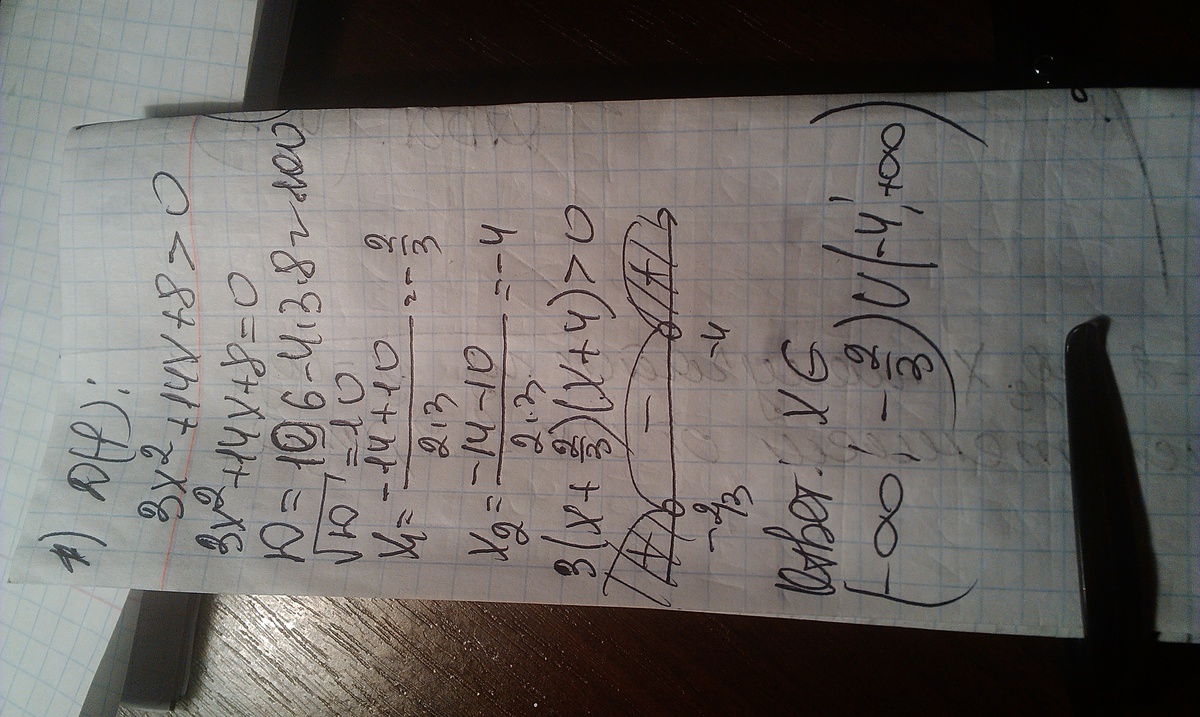 *) D(f):
3x²+14x+8>0
3x²+14x+8=0
D=196-4·3·8=100
√D=10
x₁=(-14+10)/(2·3)=-2/3
x₂=(-14-10)/(2·3)=-4
3(x+2/3)(x+4)>0
+ - +
-2/3 -4
Ответ: x∈
(-∞; -2/3)∪(-4; +∞)